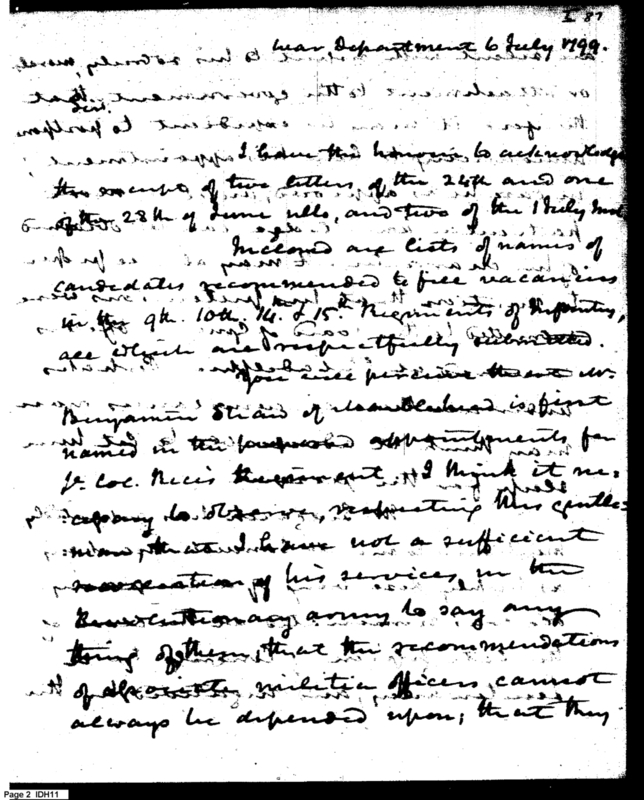 I 87
War Department 6 July 1799.
Sir
I have the honour to acknowledge
the receipt of two letters of the 24th and one
of the 28th of June ulto, and two of the 1 July Inst
Inclosed are lists of names of
candidates recommended to free vacancies
in the 9th. 10th. 14. & 15th Regiments of Infantry,
all which are respectfully submitted.
You will perceive that Mr.
Benjamin of is first
named in the proposed appointments for
Jr Col. Regiment. I think it ne-
cessary to observe, respecting this gentle-
man, that I have not a sufficient
recollection of his services, in the
Revolutionary army to say any
thing of them, that the recommendations
of militia officers, cannot
always be depended upon; that they
Page 2 IDH11